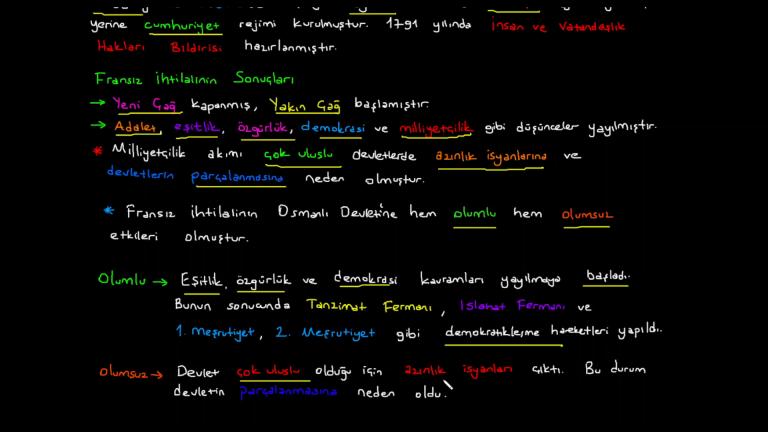 yerine cumhuriyet rejimi kurulmuştur. 1791 yılında insan ve Vatandaşlık
Hakları Bildirisi hazırlanmıştır.
Fransız ihtilalinin Sonuçları
→ Yeni Çağ kapanmış, Yakın Çağ başlamıştır.
→ Adalet, eşitlik, özgürlük, demokrasi ve milliyetçilik gibi düşünceler yayılmıştır.
* Milliyetçilik akımı çok uluslu devletlerde azınlık isyanlarına ve
devletlerin parçalanmasına neden olmuştur.
* Fransız ihtilalinin Osmanlı Devleti'ne hem olumlu hem olumsuz
etkileri olmuştur.
Olumlu → Eşitlik, özgürlük ve demokrasi kavramları yayılmaya başladı.
Bunun sonucunda Tanzimat Fermanı, Islahat Fermanı ve
1. Meşrutiyet, 2. Meşrutiyet gibi demokratikleşme hareketleri yapıldı.
Olumsuz → Devlet çok uluslu olduğu için azınlık isyanları çıktı. Bu durum
devletin parçalanmasına neden oldu.